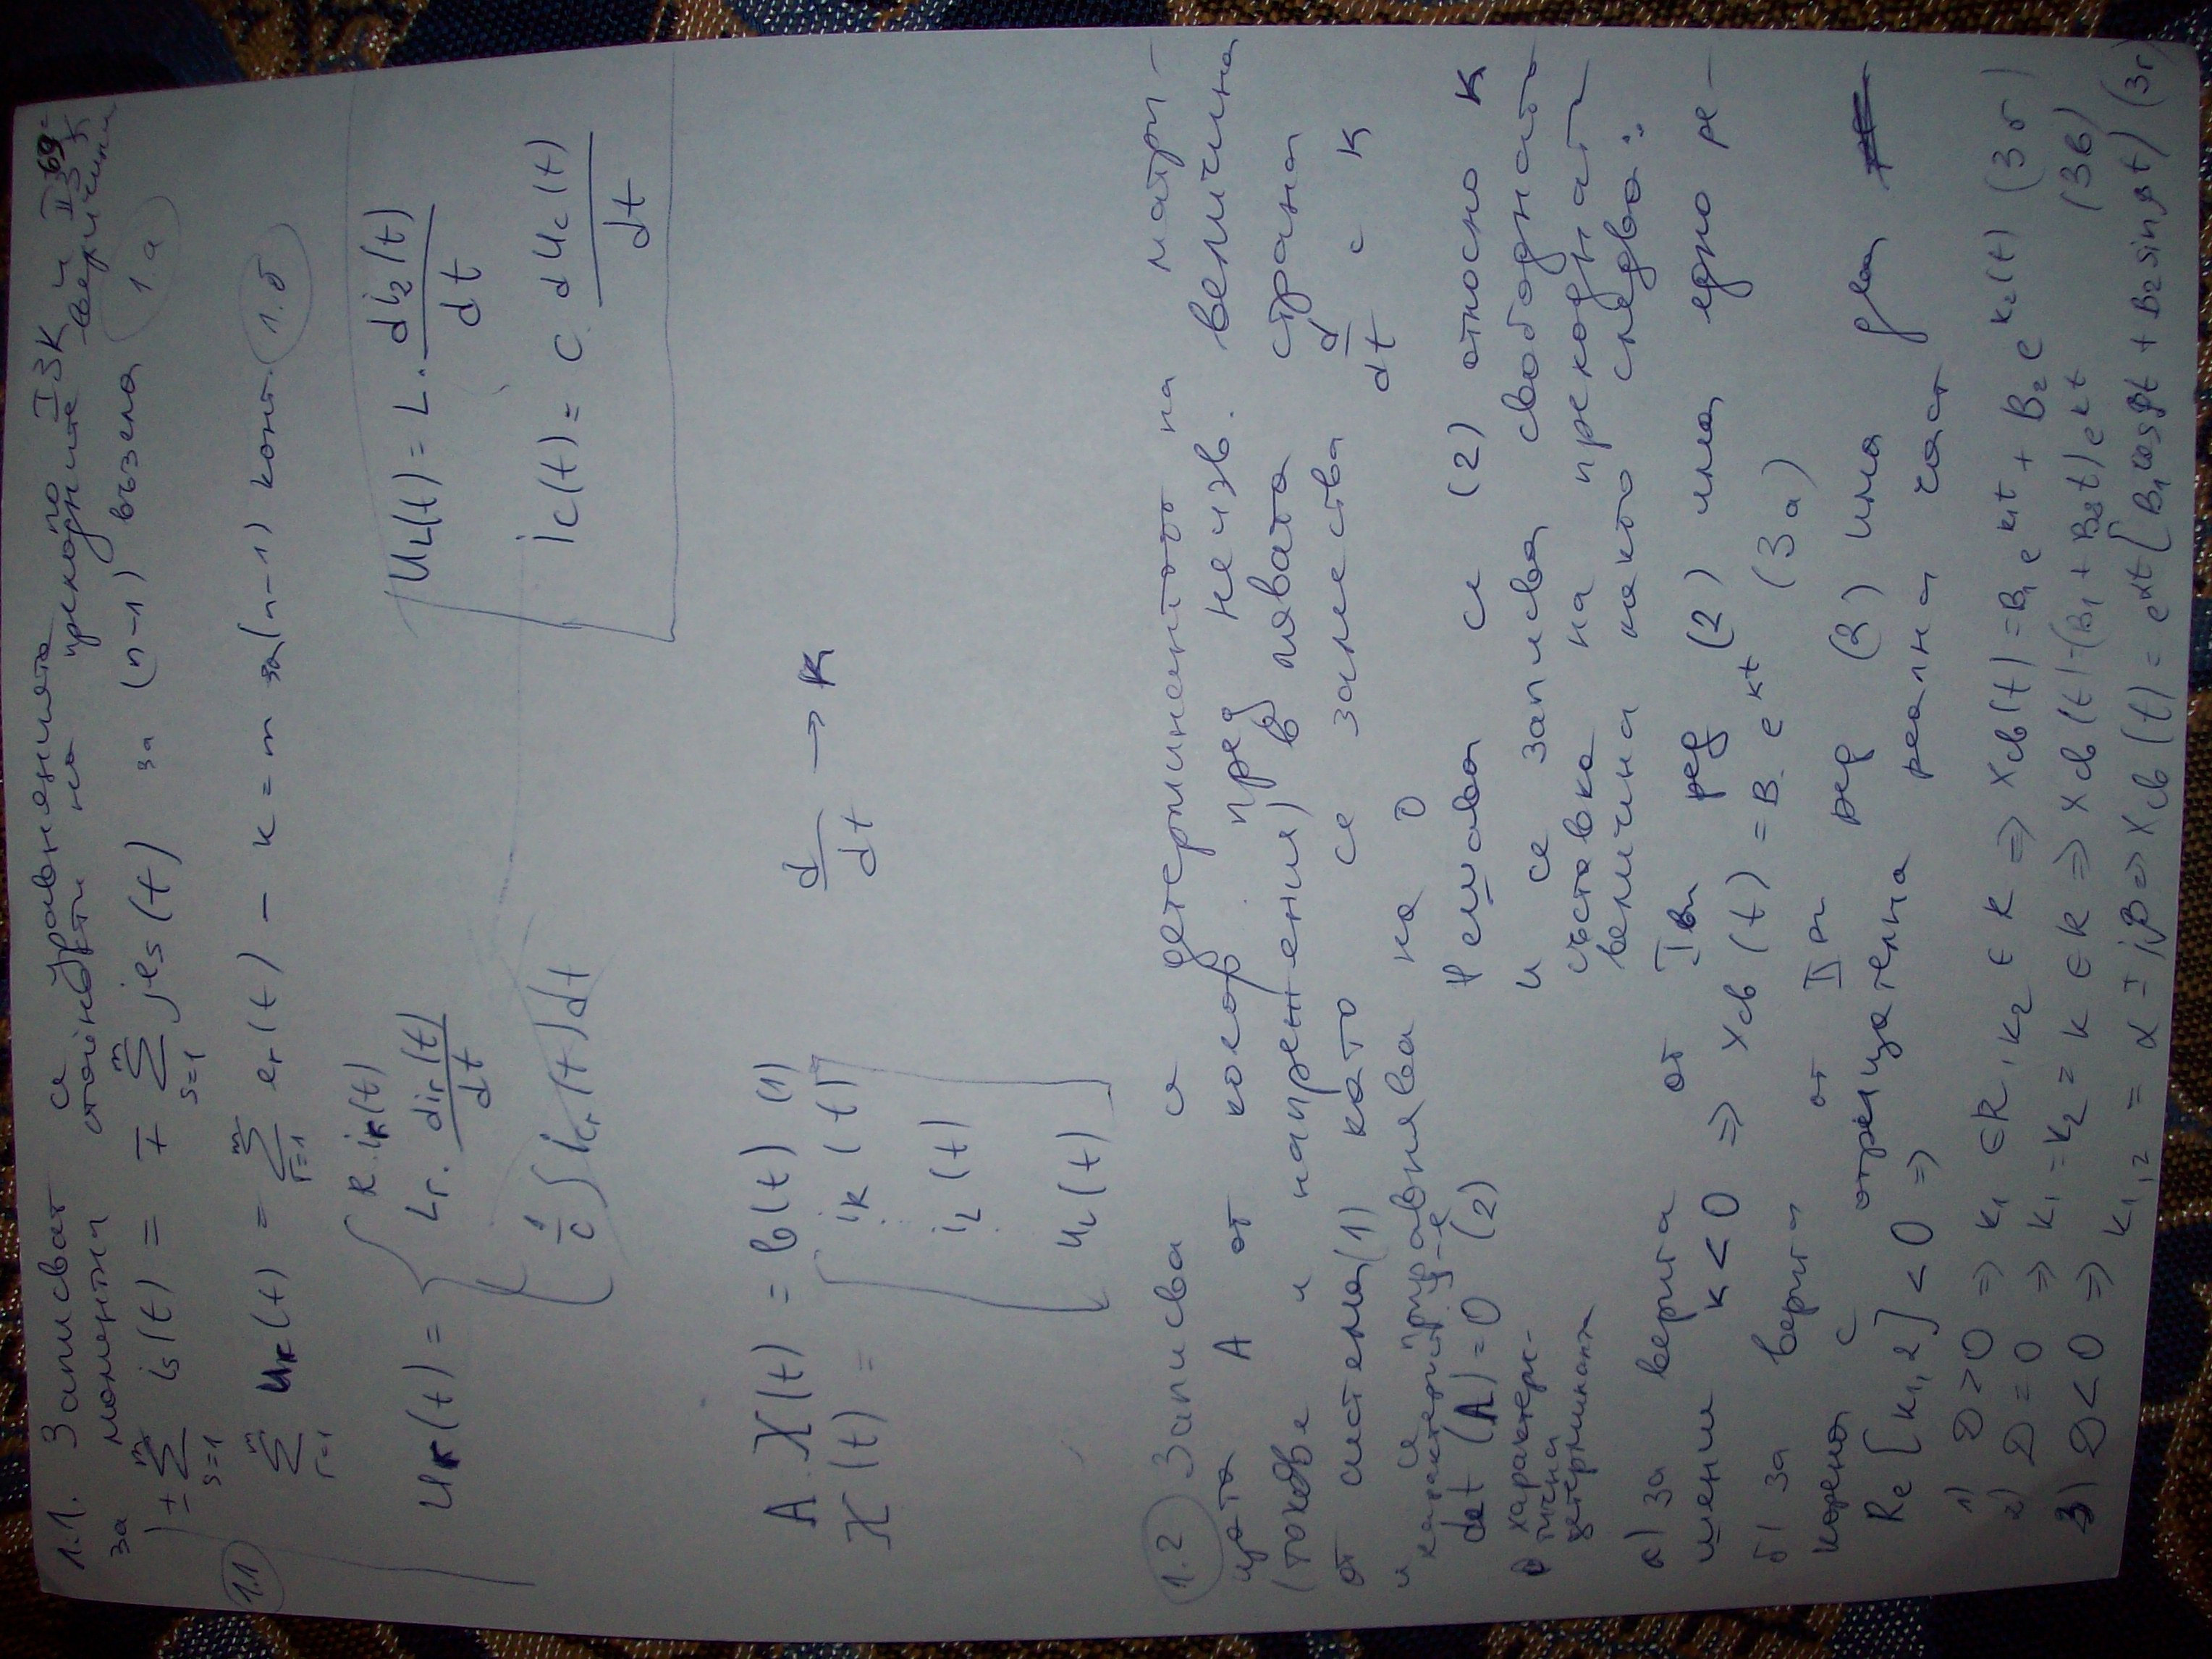 69
1.1. Записват се уравненията по I ЗК и II ЗК
за моментни стойности на преходните величини
± ∑ is(t) = ∓ ∑ jes(t) за (n-1) възела 1.a
s=1 m s=1 m
1.1
∑ uк(t) = ∑ er(t) - к = m за(n-1) конт. 1.б
r=1 m r=1 m
uк(t) = { R.iк(t)
Lr. dir(t)/dt
1/c ∫icr(t)dt
UL(t) = L. diL(t)/dt
ic(t) = C. dUc(t)/dt
A.X(t) = b(t) (1)
d/dt → к
X(t) = [ iк(t)
iL(t)
uc(t) ]
1.2 Записва се детерминантата на матри-
цата A от коеф. пред неизв. величина
(токове и напрежения) в лявата страна
от система(1) като се замества d/dt с к
и се приравнява на 0
характеристич. у-е
det (A) = 0 (2)
характерис-
тична
детерминанта
Решава се (2) относно к
и се записва свободната
съставка на преходната
величина както следва:
а) за верига от Iви ред (2) има едно ре-
шение к < 0 => xсв(t) = B.e^кt (3а)
б) за верига от II ри ред (2) има два
корена с отрицателна реална част
Re [к1,2] < 0 =>
1) D>0 => к1 ∈ R, к2 ∈ R => xсв(t) = B1 e^к1t + B2 e^к2(t) (3б)
2) D=0 => к1 = к2 = к ∈ R => xсв(t) = (B1 + B2t) e^кt (3в)
3) D<0 => к1,2 = α ± jβ => xсв(t) = e^αt [B1 cosβt + B2 sinβt) (3г)